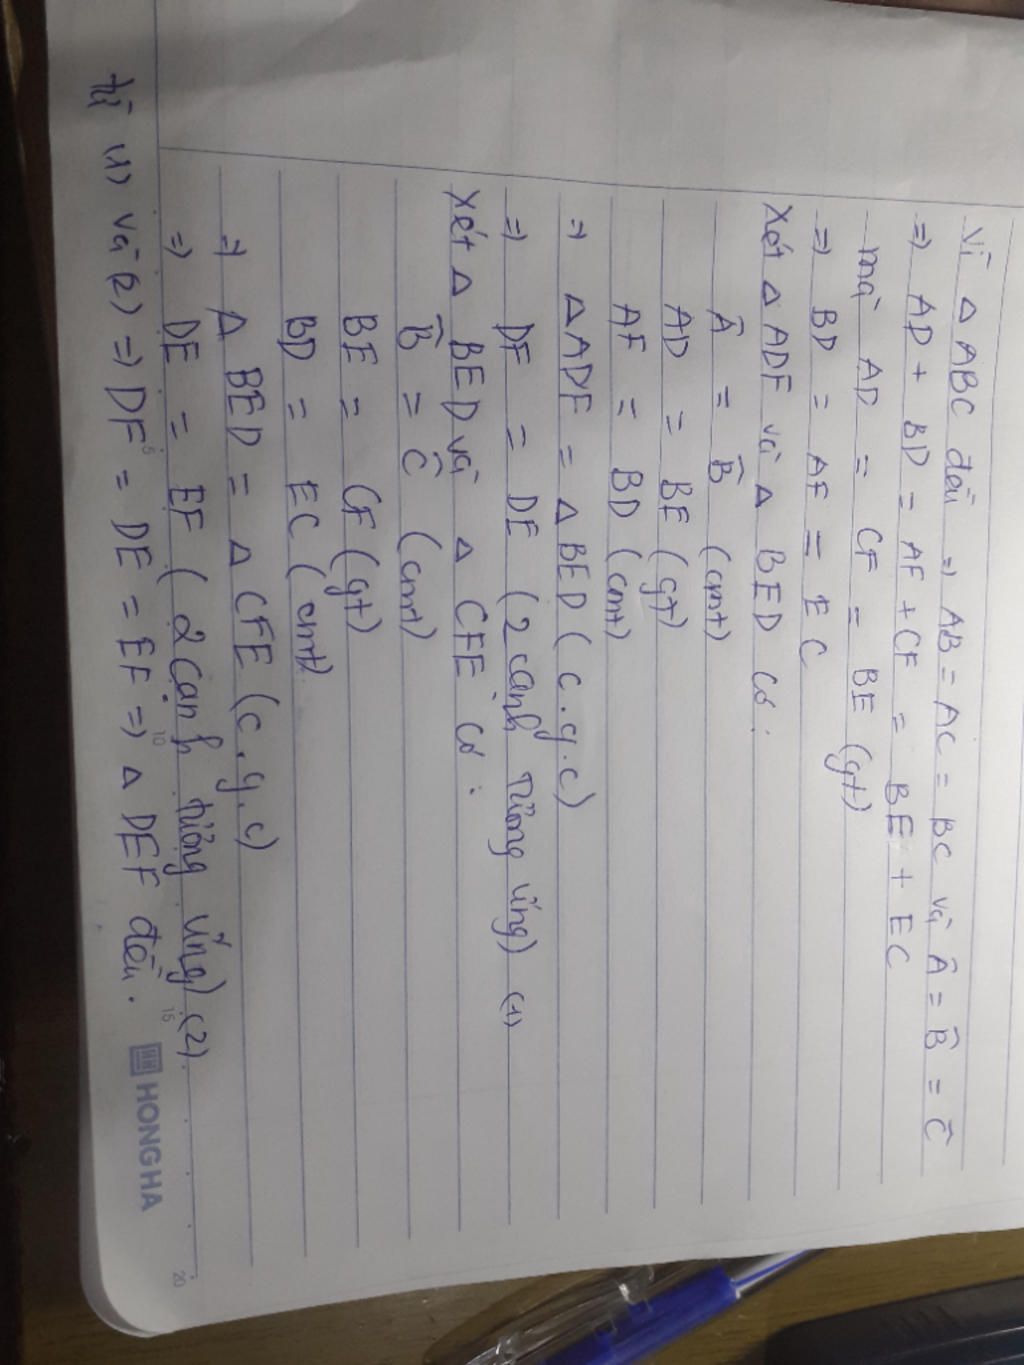 Vì △ ABC đều => AB = AC = BC và Â = B̂ = Ĉ
=> AD + BD = AF + CF = BE + EC
mà AD = CF = BE (gt)
=> BD = AF = EC
Xét △ ADF và △ BED có:
Â = B̂ (cmt)
AD = BE (gt)
AF = BD (cmt)
=> △ADF = △BED (c.g.c)
=> DF = DE (2 cạnh tương ứng) (1)
Xét △ BED và △ CFE có:
B̂ = Ĉ (cmt)
BE = CF (gt)
BD = EC (cmt)
=> △ BED = △ CFE (c.g.c)
=> DE = EF (2 cạnh tương ứng) (2).
từ (1) và (2) => DF = DE = EF => △ DEF đều.
5 10 15 20
HONG HA